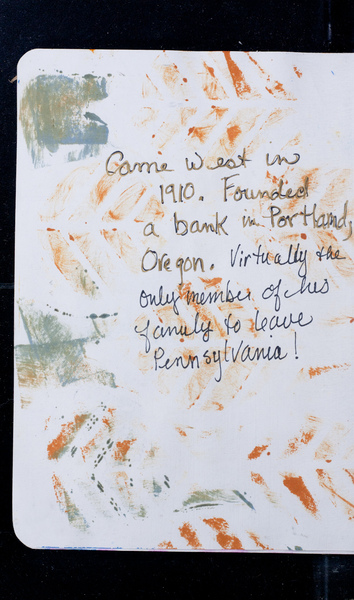 Came West in
1910. Founded
a bank in Portland,
Oregon. Virtually the
only member of his
family to leave
Pennsylvania!